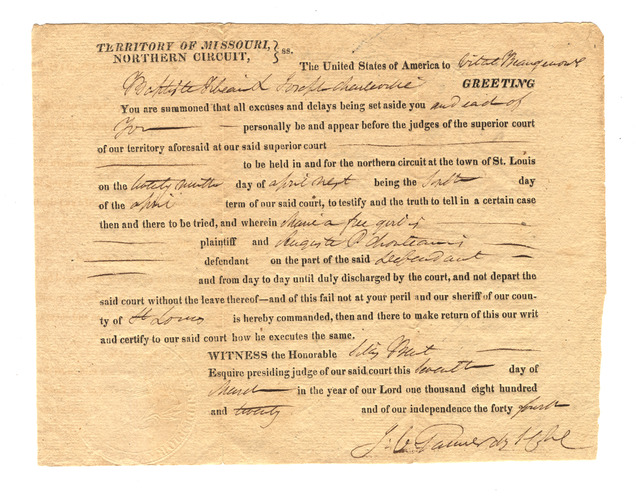 TERRITORY OF MISSOURI,
NORTHERN CIRCUIT, ss.
The United States of America to
Baptiste Joseph GREETING
You are summoned that all excuses and delays being set aside you and each of
You personally be and appear before the judges of the superior court
of our territory aforesaid at our said superior court
to be held in and for the northern circuit at the town of St. Louis
on the day of april next being the day
of the april term of our said court, to testify and the truth to tell in a certain case
then and there to be tried, and wherein Marie a free girl is
plaintiff and Auguste P Chouteau is
defendant on the part of the said Defendant
and from day to day until duly discharged by the court, and not depart the
said court without the leave thereof—and of this fail not at your peril and our sheriff of our coun-
ty of St Louis is hereby commanded, then and there to make return of this our writ
and certify to our said court how he executes the same.
WITNESS the Honorable
Esquire presiding judge of our said court this Seventh day of
March in the year of our Lord one thousand eight hundred
and twenty and of our independence the forty fourth